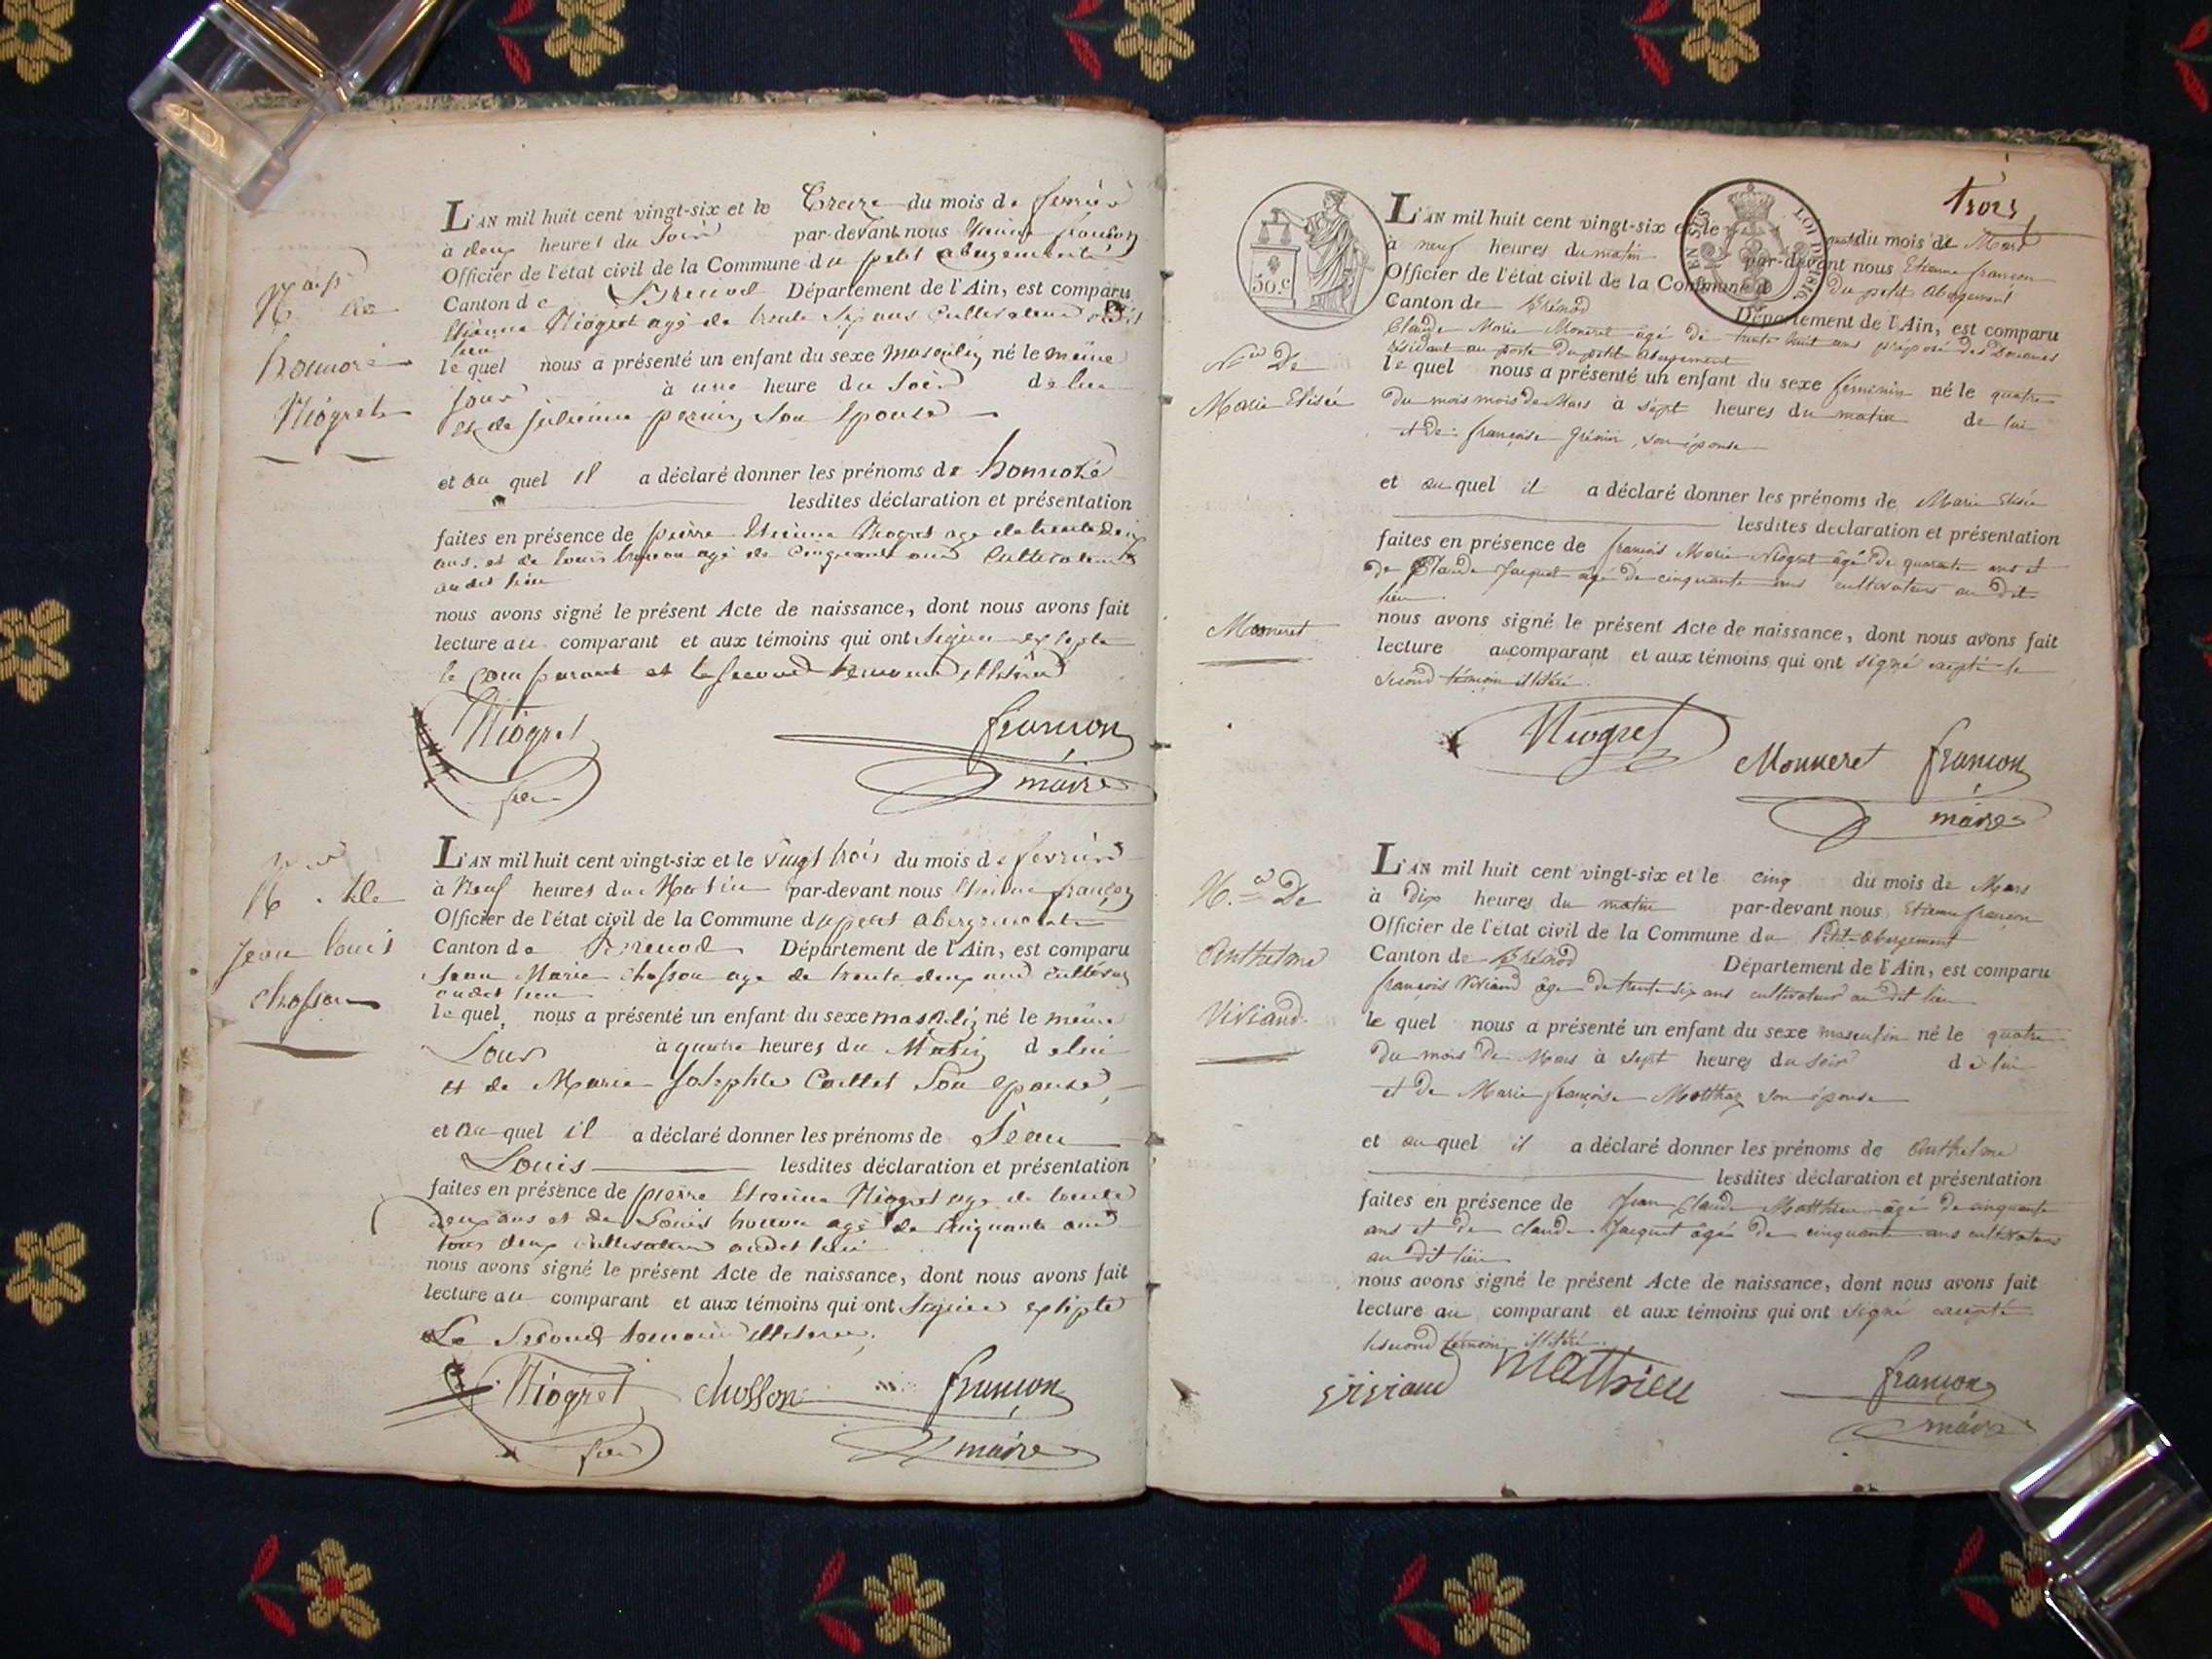 Naiss
de
honnoré
Niogret
L'AN mil huit cent vingt-six et le Treize du mois de fevrier
à deux heures du Soir par-devant nous Etienne françon
Officier de l'état civil de la Commune du petit abergement
Canton de Brenod Département de l'Ain, est comparu
Etienne Niogret agé de trente six ans Cultivateur audit
lieu
lequel nous a présenté un enfant du sexe masculin né le même
jour à une heure du Soir de lui
et de julienne perrin, Son Epouse
et au quel il a déclaré donner les prénoms de honnoré
lesdites déclaration et présentation
faites en présence de pierre Etienne Niogret age de trente deux
ans et de Louis agé de Cinquante ans Cultivateurs
audit lieu
nous avons signé le présent Acte de naissance, dont nous avons fait
lecture au comparant et aux témoins qui ont Signée excepte
le Comparant et le Second temoin
Niogret
françon
maire
N de
jean Louis
chosson
L'AN mil huit cent vingt-six et le vingt trois du mois de fevrier
à Neuf heures du Matin par-devant nous Etienne françon
Officier de l'état civil de la Commune du petit abergement
Canton de Brenod Département de l'Ain, est comparu
Jean Marie chosson age de trente deux ans
audit lieu
lequel nous a présenté un enfant du sexe né le même
Jour à quatre heures du Matin de lui
et de Marie Josephte Collet Son epouse,
et au quel il a déclaré donner les prénoms de Jean
Louis lesdites déclaration et présentation
faites en présence de pierre Etienne Niogret age de trente
deux ans et de Louis agé de Cinquante ans
tous deux Cultivateurs audit lieu
nous avons signé le présent Acte de naissance, dont nous avons fait
lecture au comparant et aux témoins qui ont Signée
Le Second temoin
Niogret chosson françon
maire
trois
50.C
EN SUS
LOI DE 1816
Nce De
Marie Elisée
Monneret
L'AN mil huit cent vingt-six et le quatre du mois de Mars
à neuf heures du matin par-devant nous Etienne françon
Officier de l'état civil de la Commune du petit abergement
Canton de Brénod Département de l'Ain, est comparu
Claude Marie Moneret âgé de trente huit ans préposé des Douanes
résidant au poste du petit abergement
lequel nous a présenté un enfant du sexe féminin né le quatre
du mois mois de Mars à sept heures du matin de lui
et de françoise Grésnin, son épouse
et au quel il a déclaré donner les prénoms de Marie Elisée
lesdites déclaration et présentation
faites en présence de françois Marie Niogret âgé de quarante ans et
de Claude Jacquet âgé de cinquante ans cultivateurs au dit
lieu.
nous avons signé le présent Acte de naissance, dont nous avons fait
lecture au comparant et aux témoins qui ont signé excepté le
second témoin illitéré.
Niogret
Monneret françon
maire
N.ce De
Anthelme
Viviand
L'AN mil huit cent vingt-six et le cinq du mois de Mars
à dix heures du matin par-devant nous Etienne françon
Officier de l'état civil de la Commune du Petit-abergement
Canton de Brénod Département de l'Ain, est comparu
françois Viviand âgé de trente six ans cultivateur au dit lieu
lequel nous a présenté un enfant du sexe masculin né le quatre
du mois de Mars à sept heures du soir de lui
et de Marie françoise Matthay son épouse
et au quel il a déclaré donner les prénoms de Anthelme
lesdites déclaration et présentation
faites en présence de Jean Claude Matthieu âgé de cinquante
ans et de claude Jacquet âgé de cinquante ans cultivateurs
au dit lieu
nous avons signé le présent Acte de naissance, dont nous avons fait
lecture au comparant et aux témoins qui ont signé excepté
le second témoin illitéré.
viviand mathieu françon
maire